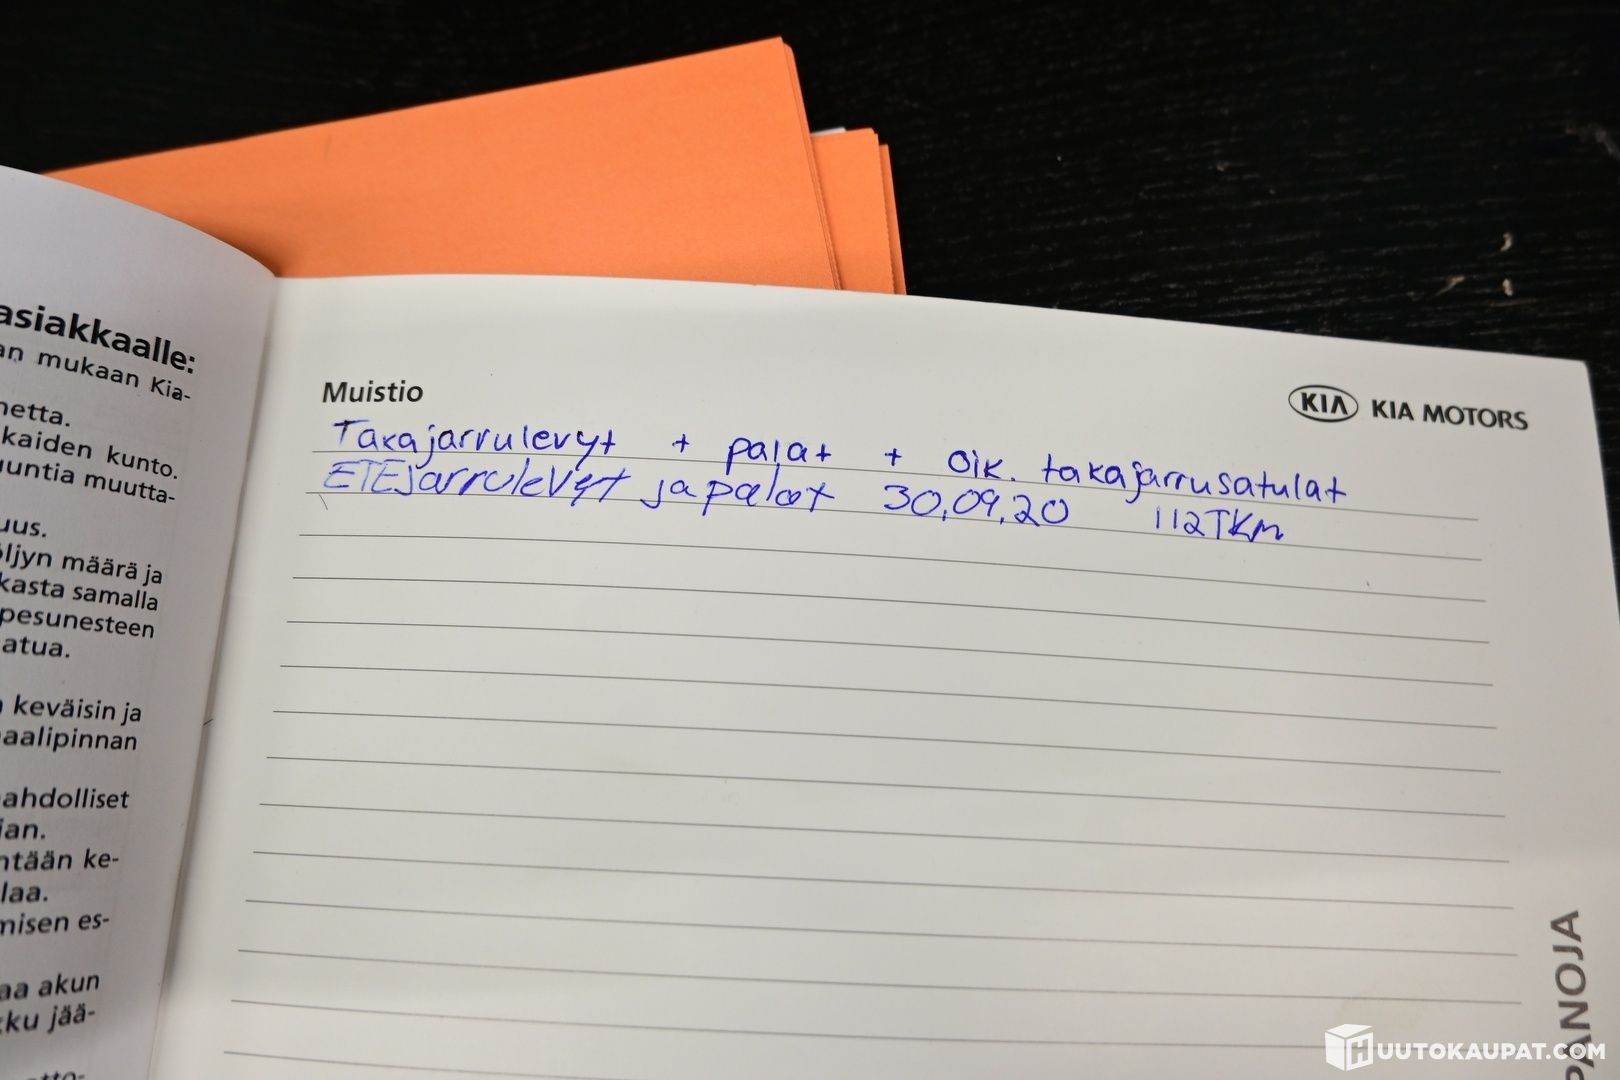 asiakkaalle:
an mukaan Kia-
netta.
kaiden kunto.
untia muutta-
uus.
öljyn määrä ja
kasta samalla
pesunesteen
atua.
keväisin ja
aalipinnan
ahdolliset
ian.
ntään ke-
laa.
misen es-
aa akun
ku jää-
Muistio
KIA KIA MOTORS
Takajarrulevyt + palat + oik. takajarrusatulat
ETEjarrulevyt ja palat 30.09.20 112TKm
PANOJA
HUUTOKAUPAT.COM